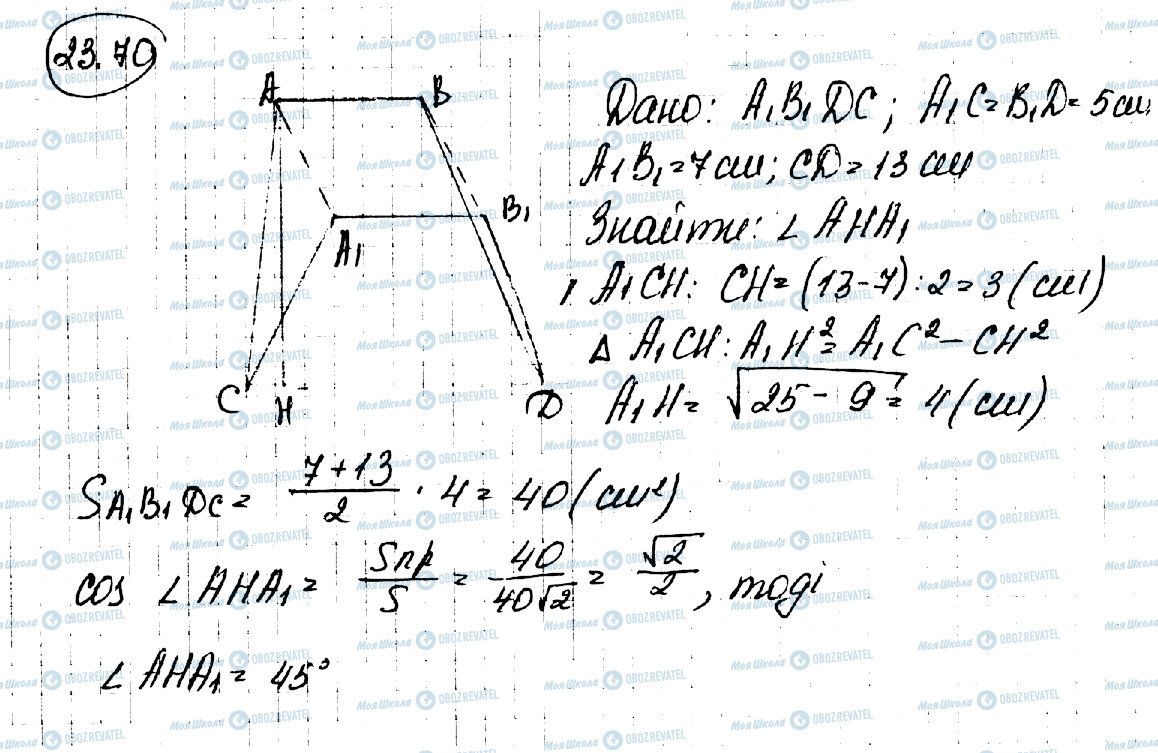 23.70
A B
B₁
A₁
C H D
Дано: A₁B₁DC; A₁C = B₁D = 5 см
A₁B₁ = 7 см; CD = 13 см
Знайти: ∠ AHA₁
A₁CH: CH = (13 - 7) : 2 = 3 (см)
Δ A₁CH: A₁H² = A₁C² - CH²
A₁H = √25 - 9 = 4 (см)
S A₁B₁DC = 7 + 13 / 2 · 4 = 40 (см²)
cos ∠ AHA₁ = Sпр / S = 40 / 40√2 = √2 / 2, тоді
∠ AHA₁ = 45°
МОЯ ШКОЛА OBOZREVATEL